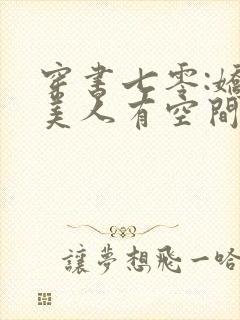 穿書七零:嬌
美人有空間
讓夢想飛一哈